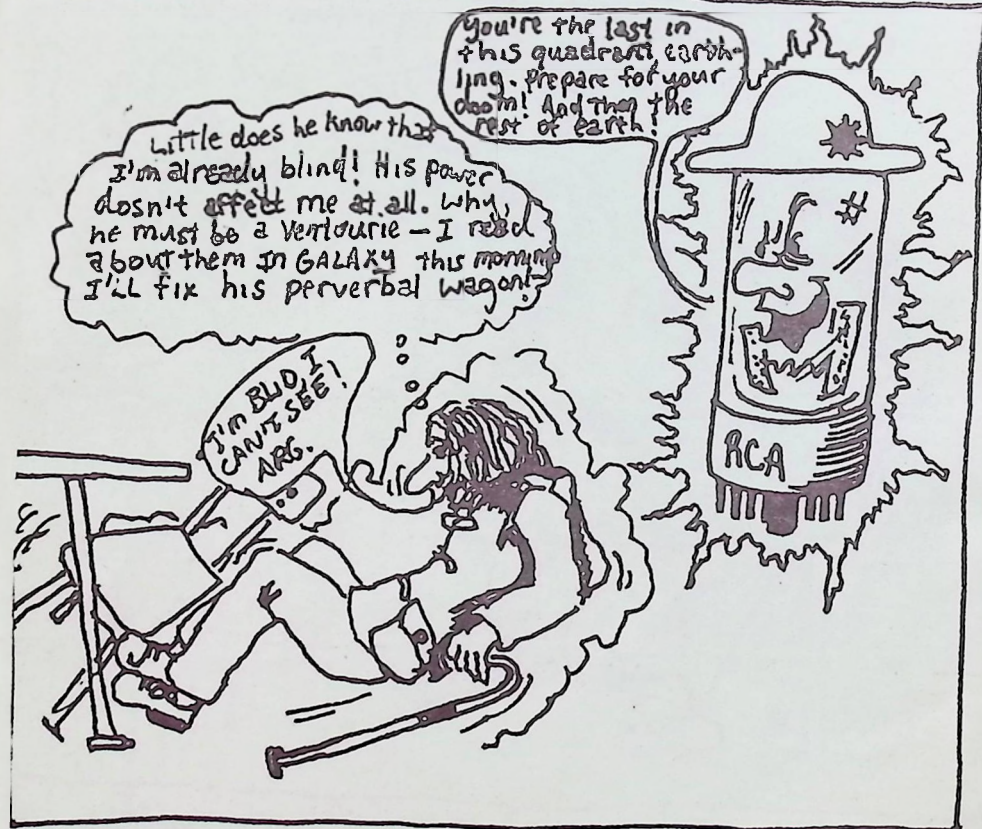 You're the last in
this quadrant, earth-
ling. Prepare for your
doom! And then the
rest of earth!
Little does he know that
I'm already blind! His power
dosn't affect me at all. Why,
he must be a Ventourie — I read
about them IN GALAXY this morning
I'LL fix his perverbal wagon!
I'm BLID, I
CAN'T SEE!
ARG.
RCA